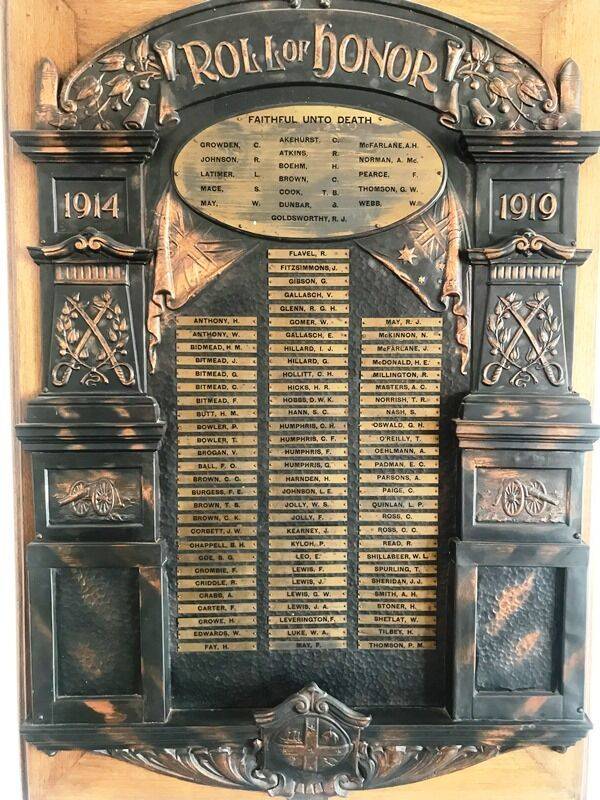 ROLL OF HONOR
FAITHFUL UNTO DEATH
GROWDEN, C.
JOHNSON, R.
LATIMER, L.
MACE, S.
MAY, W.
AKEHURST, C.
ATKINS, R.
BOEHM, H.
BROWN, C.
COOK, T. B.
DUNBAR, J.
GOLDSWORTHY, R. J.
McFARLANE, A.H.
NORMAN, A. Mc.
PEARCE, F.
THOMSON, G. W.
WEBB, W.
1914
1919
ANTHONY, H.
ANTHONY, W.
BIDMEAD, H. M.
BITMEAD, J.
BITMEAD, G.
BITMEAD, C.
BITMEAD, F.
BUTT, H. M.
BOWLER, P.
BOWLER, T.
BROGAN, V.
BALL, F. O.
BROWN, C. G.
BURGESS, F. E.
BROWN, T. S.
BROWN, C. K.
CORBETT, J. W.
CHAPPELL, B. H.
COE, S. G.
CROMBIE, F.
CRIDDLE, R.
CRABB, A.
CARTER, F.
CROWE, H.
EDWARDS, W.
FAY, H.
FLAVEL, R.
FITZSIMMONS, J.
GIBSON, G.
GALLASCH, V.
GLENN, R. G. H.
GOMER, W.
GALLASCH, E.
HILLARD, I. J.
HILLARD, G.
HOLLITT, C. H.
HICKS, H. R.
HOBBS, D. W. K.
HANN, S. C.
HUMPHRIS, C. H.
HUMPHRIS, C. F.
HUMPHRIS, F.
HUMPHRIS, G.
HARNDEN, H.
JOHNSON, L. E.
JOLLY, W. S.
JOLLY, F.
KEARNEY, J.
KYLOH, P.
LEO, E.
LEWIS, F.
LEWIS, J.
LEWIS, G. W.
LEWIS, J. A.
LEVERINGTON, F.
LUKE, W. A.
MAY, F.
MAY, R. J.
McKINNON, N.
McFARLANE, J.
McDONALD, H. E.
MILLINGTON, R.
MASTERS, A. C.
NORRISH, T. R.
NASH, S.
OSWALD, G. H.
O'REILLY, T.
OEHLMANN, A.
PADMAN, E. C.
PARSONS, A.
PAIGE, C.
QUINLAN, L. P.
ROSS, C.
ROSS, C. C.
READ, R.
SHILLABEER, W. L.
SPURLING, T.
SHERIDAN, J. J.
SMITH, A. H.
STONER, H.
SHETLAT, W.
TILBEY, H.
THOMSON, P. M.